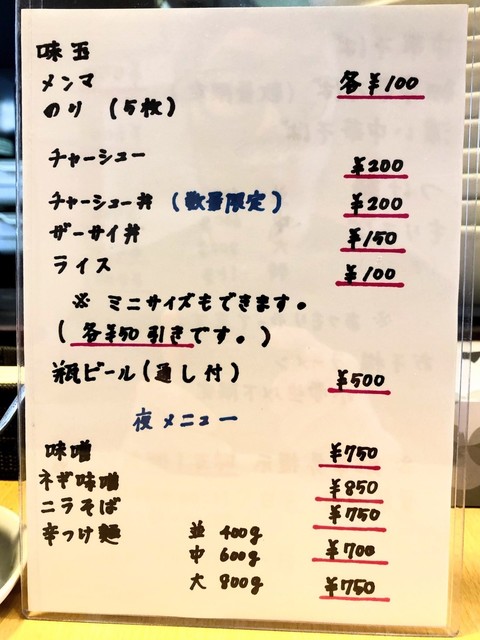 味玉
メンマ 各￥100
のり (5枚)
チャーシュー ￥200
チャーシュー丼 (数量限定) ￥200
ザーサイ丼 ￥150
ライス ￥100
※ ミニサイズもできます。
(各￥50引きです。)
瓶ビール(通し付) ￥500
夜メニュー
味噌 ￥750
ネギ味噌 ￥850
ニラそば ￥750
辛つけ麺 並 400g
中 600g ￥700
大 800g ￥750